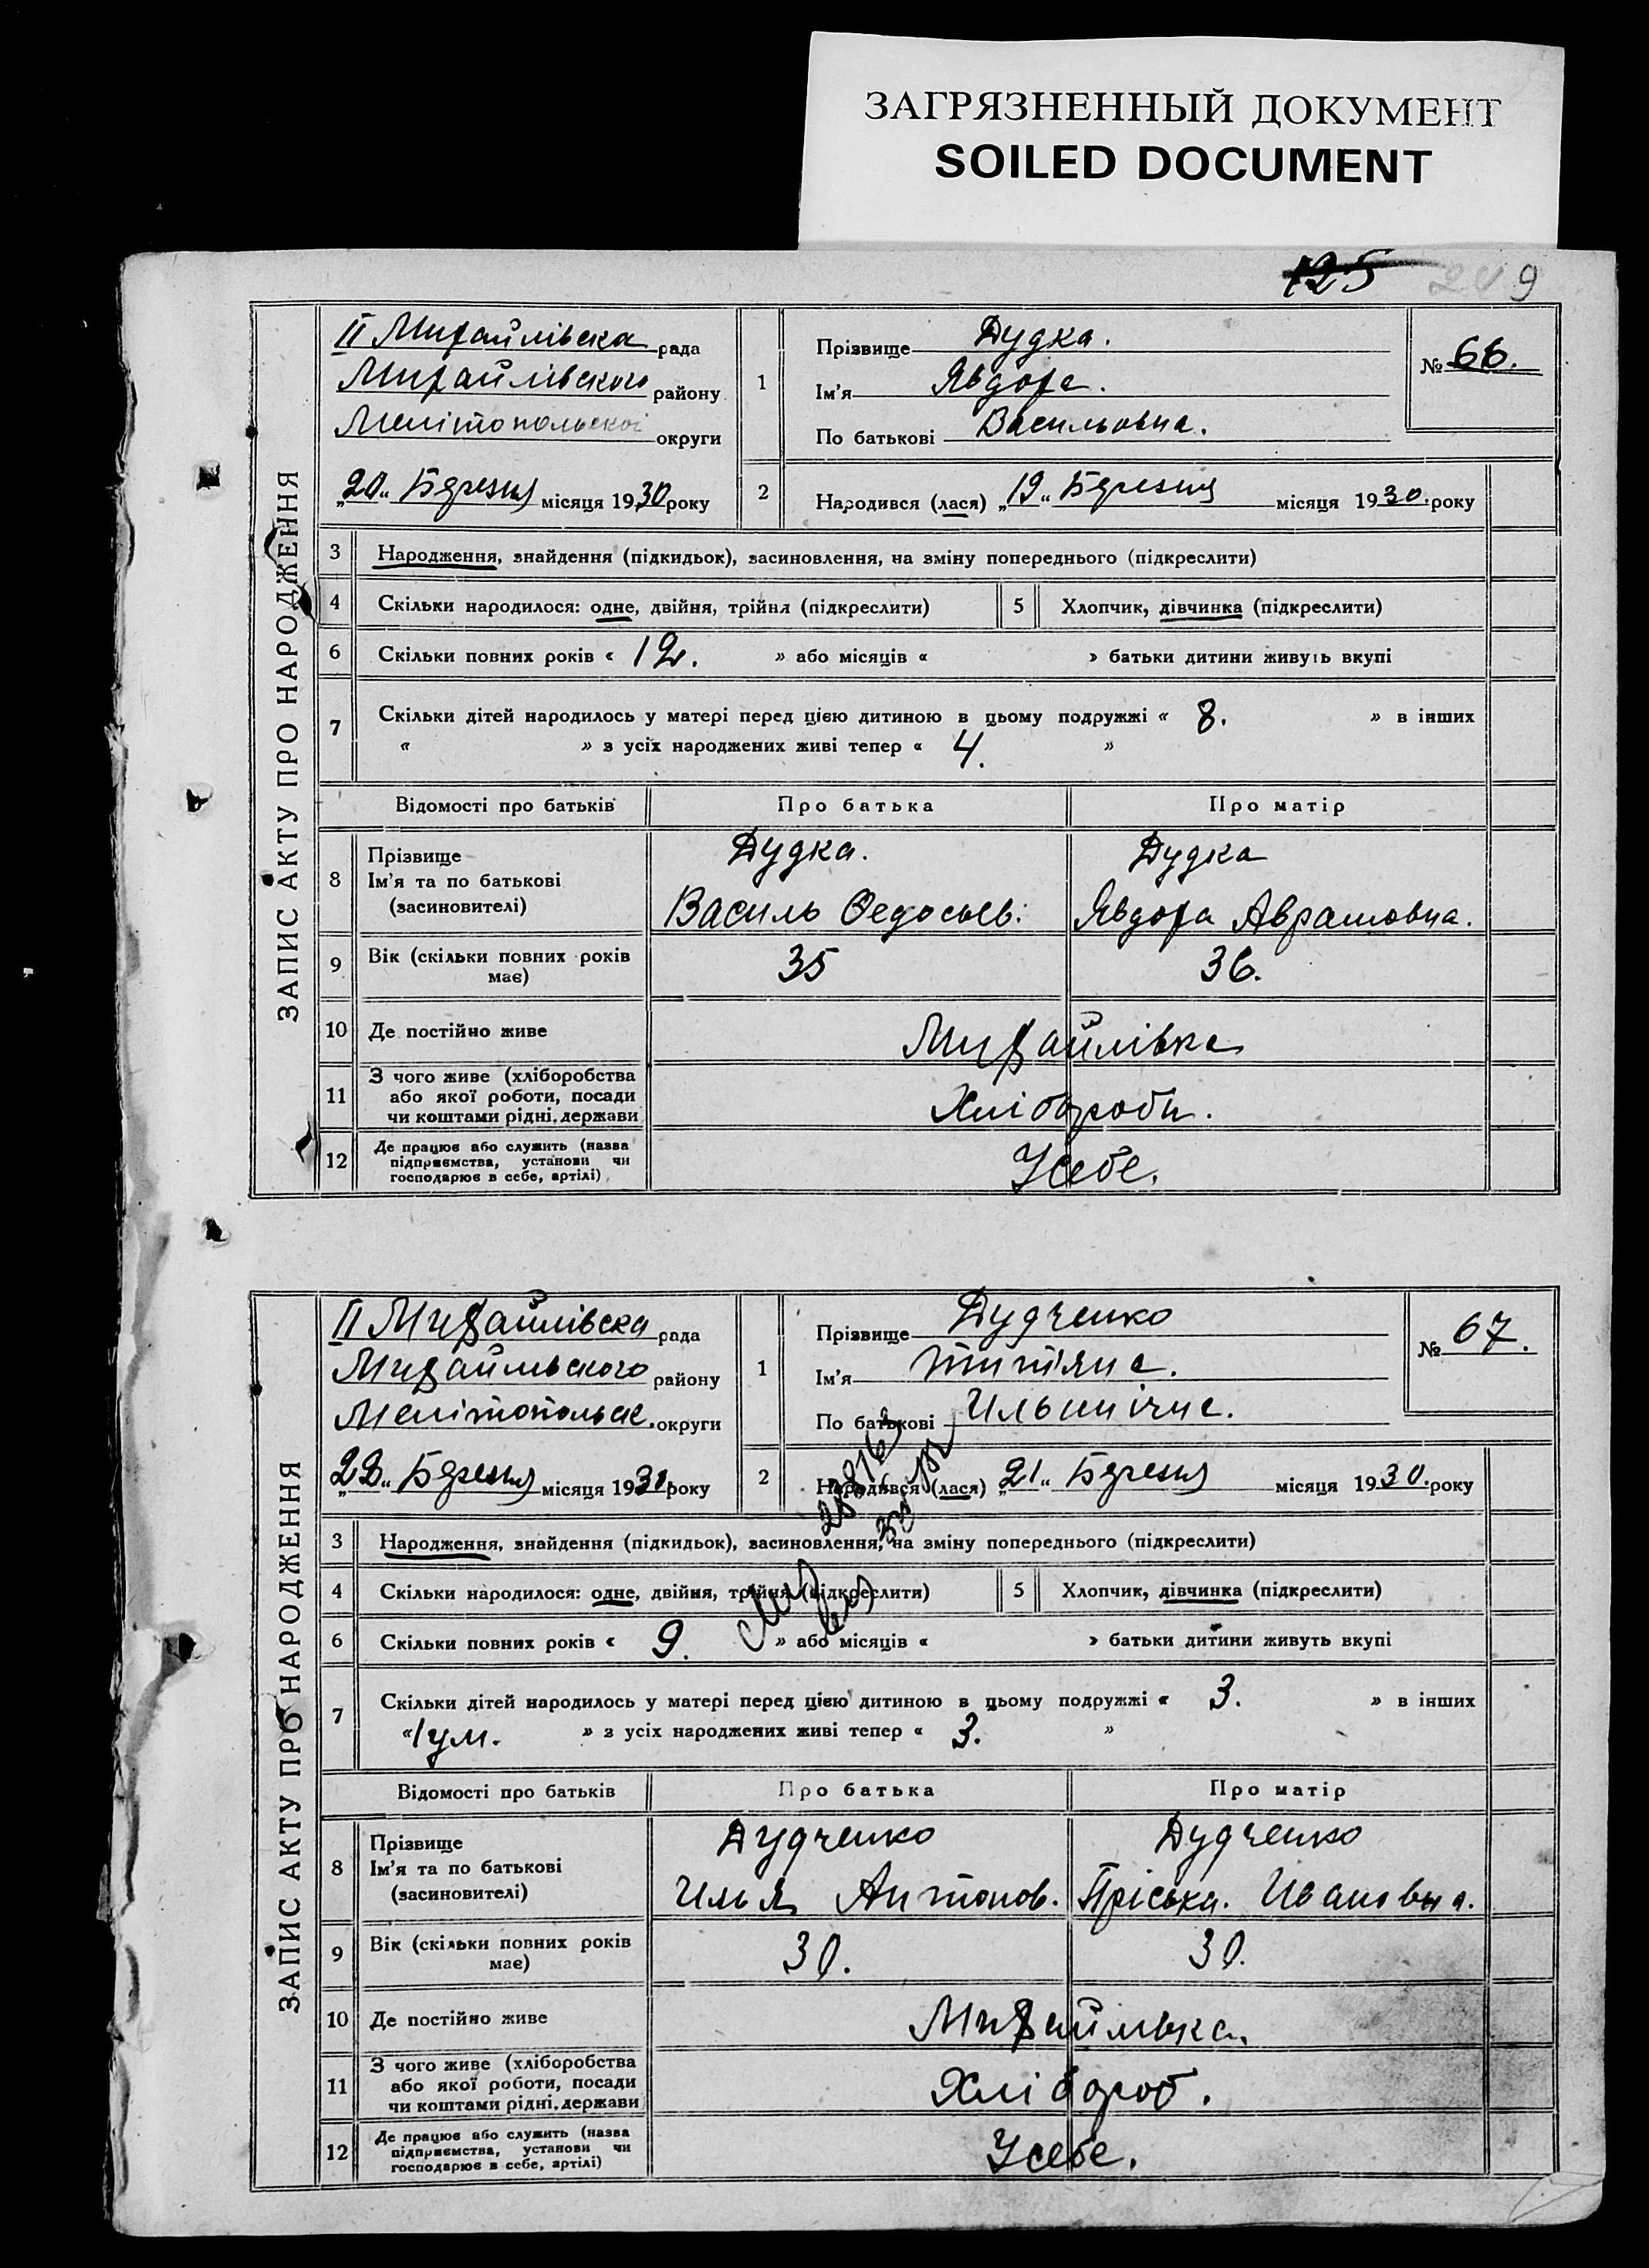 ЗАГРЯЗНЕННЫЙ ДОКУМЕНТ
SOILED DOCUMENT
125
9
ЗАПИС АКТУ ПРО НАРОДЖЕННЯ
ІІ Михайлівска рада
Михайлівского району
Мелітопольскої округи
„20" Березня місяця 1930 року
1
Прізвище Дудка.
Ім'я Явдоха.
По батькові Васильовна.
№ 66.
2
Народився (лася) „19" Березня місяця 1930. року
3 Народження, знайдення (підкидьок), засиновлення, на зміну попереднього (підкреслити)
4 Скільки народилося: одне, двійня, трійня (підкреслити) 5 Хлопчик, дівчинка (підкреслити)
6 Скільки повних років « 12. » або місяців « » батьки дитини живуть вкупі
7 Скільки дітей народилось у матері перед цією дитиною в цьому подружжі « 8. » в інших
« » з усіх народжених живі тепер « 4. »
Відомості про батьків Про батька Про матір
8 Прізвище
Ім'я та по батькові
(засиновителі)
Дудка.
Василь Федосьев:
Дудка
Явдоха Аврамовна.
9 Вік (скільки повних років має) 35 36.
10 Де постійно живе Михайлівка
11 З чого живе (хліборобства
або якої роботи, посади
чи коштами рідні, держави
Хлібороби.
12 Де працює або служить (назва
підприємства, установи чи
господарює в себе, артілі)
Усебе.
ЗАПИС АКТУ ПРО НАРОДЖЕННЯ
ІІ Михайлівска рада
Михайльвского району
Мелітопольск. округи
„22" Березня місяця 1930 року
1
Прізвище Дудченко
Ім'я Титяна.
По батькові Ильинічна.
№ 67.
2
Народився (лася) „21" Березня місяця 1930. року
3 Народження, знайдення (підкидьок), засиновлення, на зміну попереднього (підкреслити)
4 Скільки народилося: одне, двійня, трійня (підкреслити) 5 Хлопчик, дівчинка (підкреслити)
6 Скільки повних років « 9. » або місяців « » батьки дитини живуть вкупі
7 Скільки дітей народилось у матері перед цією дитиною в цьому подружжі « 3. » в інших
« 1 ум. » з усіх народжених живі тепер « 3. »
Відомості про батьків Про батька Про матір
8 Прізвище
Ім'я та по батькові
(засиновителі)
Дудченко
Илья Антонов.
Дудченко
Пріська. Ивановна.
9 Вік (скільки повних років має) 30. 30.
10 Де постійно живе Михайлвка.
11 З чого живе (хліборобства
або якої роботи, посади
чи коштами рідні, держави
Хлібороб.
12 Де працює або служить (назва
підприємства, установи чи
господарює в себе, артілі)
Усебе.